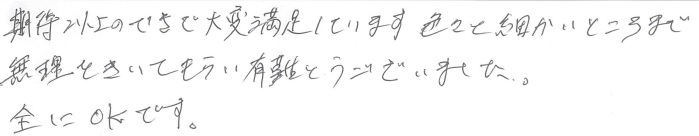 期待以上のできで大変満足しています 色々と細かいところまで
無理をきいてもらい有難とうございました。
全にOKです。